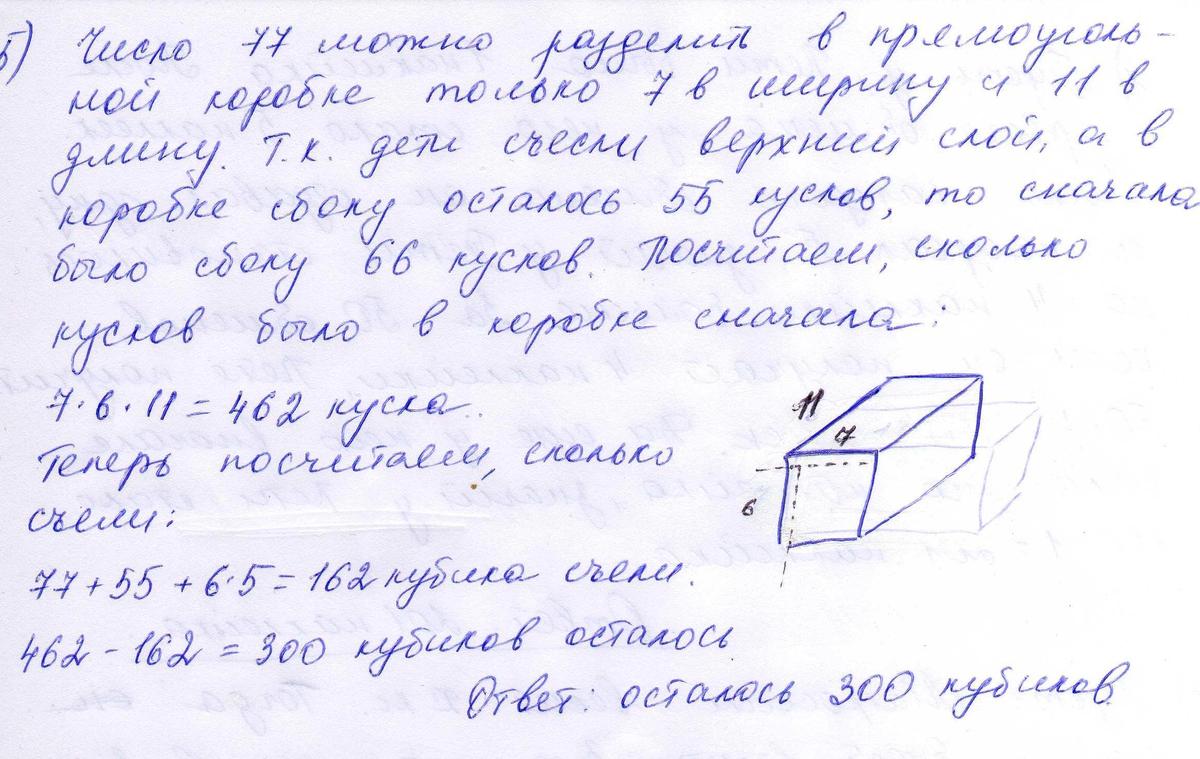 5) Число 77 можно разделить в прямоуголь-
ной коробке только 7 в ширину и 11 в
длину. Т.к. дети съесли верхний слой, а в
коробке сбоку осталось 55 кусков, то сначала
было сбоку 66 кусков. Посчитаем, сколько
кусков было в коробке сначала:
7·6·11 = 462 куска.
Теперь посчитаем, сколько
съели:
11
7
6
77 + 55 + 6·5 = 162 кубика съели.
462 - 162 = 300 кубиков осталось
Ответ: осталось 300 кубиков.